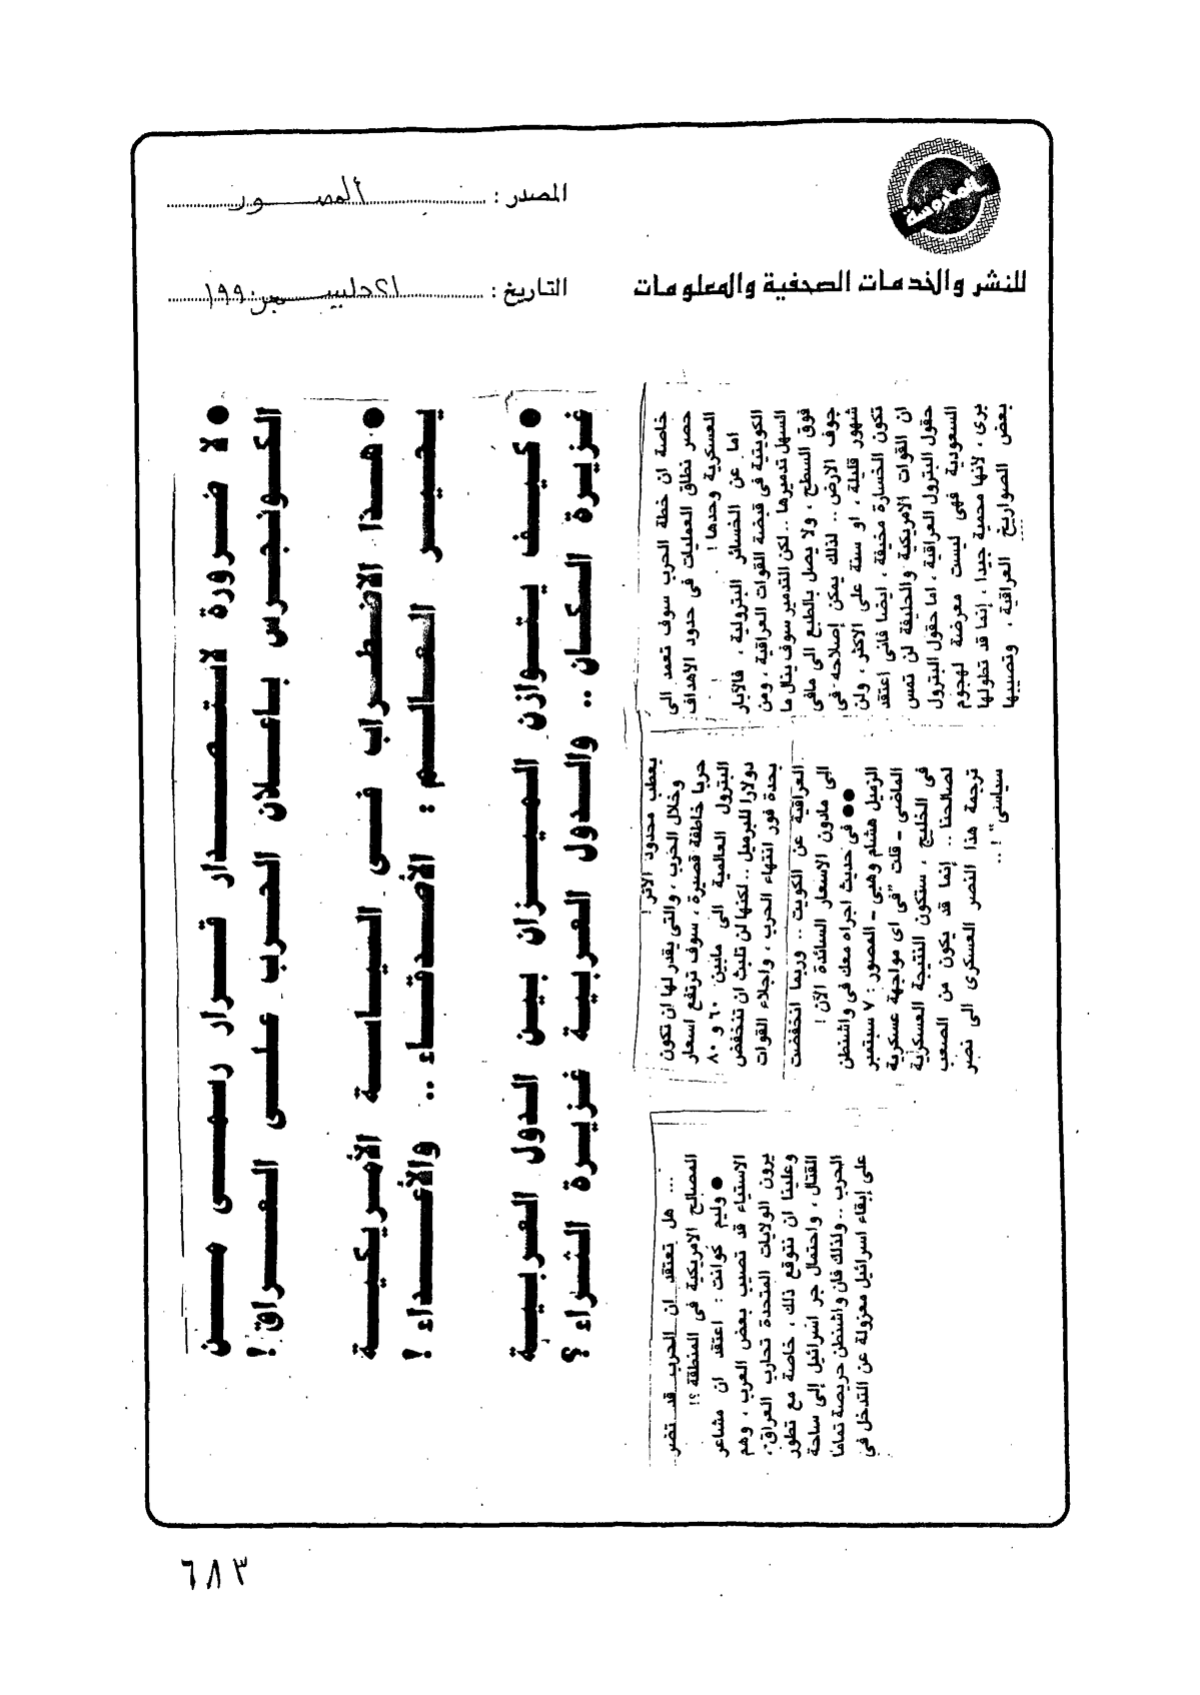 المحروسة
للنشر والخدمات الصحفية والمعلومات
المصدر : المصور
التاريخ : ٢١ ديسمبر ١٩٩٠
● لا ضرورة لاستصدار قرار رسمى من
الكونجرس باعلان الحرب على العراق !
● هذا الاضطراب فى السياسة الأمريكية
يحير العالم : الأصدقاء .. والأعداء !
● كيف يتوازن الميزان بين الدول العربية
غزيرة السكان .. والدول العربية غزيرة الثراء ؟
خاصة ان خطة الحرب سوف تعمد الى
حصر نطاق العمليات فى حدود الاهداف
العسكرية وحدها !
اما عن الخسائر البترولية ، فالآبار
الكويتية فى قبضة القوات العراقية ، ومن
السهل تدميرها .. لكن التدمير سوف ينال ما
فوق السطح ، ولا يصل بالطبع الى مافى
جوف الارض .. لذلك يمكن إصلاحه فى
شهور قليلة ، او سنة على الاكثر ، ولن
تكون الخسارة مخيفة ، ايضا فانى اعتقد
ان القوات الامريكية والحليفة لن تمس
حقول البترول العراقية ، اما حقول البترول
السعودية فهى ليست معرضة لهجوم
برى ، لأنها محمية جيدا ، إنما قد تطولها
بعض الصواريخ العراقية ، وتصيبها
بعطب محدود الاثر !
وخلال الحرب ، والتى يقدر لها ان تكون
حربا خاطفة قصيرة ، سوف ترتفع اسعار
البترول العالمية الى مابين ٦٠ و ٨٠
دولارا للبرميل .. لكنها لن تلبث ان تنخفض
بحدة فور انتهاء الحرب ، واجلاء القوات
العراقية عن الكويت .. وربما انخفضت
الى مادون الاسعار السائدة الآن !
●● فى حديث اجراه معك فى واشنطن
الزميل هشام وهبى - المصور : ٧ سبتمبر
الماضى - قلت "فى اى مواجهة عسكرية
فى الخليج ، ستكون النتيجة العسكرية
لصالحنا .. إنما قد يكون من الصعب
ترجمة هذا النصر العسكرى الى نصر
سياسى" ! ..
... هل تعتقد ان الحرب قد تضر
المصالح الامريكية فى المنطقة ؟!
● وليم كوانت : اعتقد ان مشاعر
الاستياء قد تصيب بعض العرب ، وهم
يرون الولايات المتحدة تحارب العراق ،
وعلينا ان نتوقع ذلك ، خاصة مع تطور
القتال ، واحتمال جر اسرائيل إلى ساحة
الحرب .. ولذلك فان واشنطن حريصة تماما
على إبقاء اسرائيل معزولة عن التدخل فى
٦٨٣